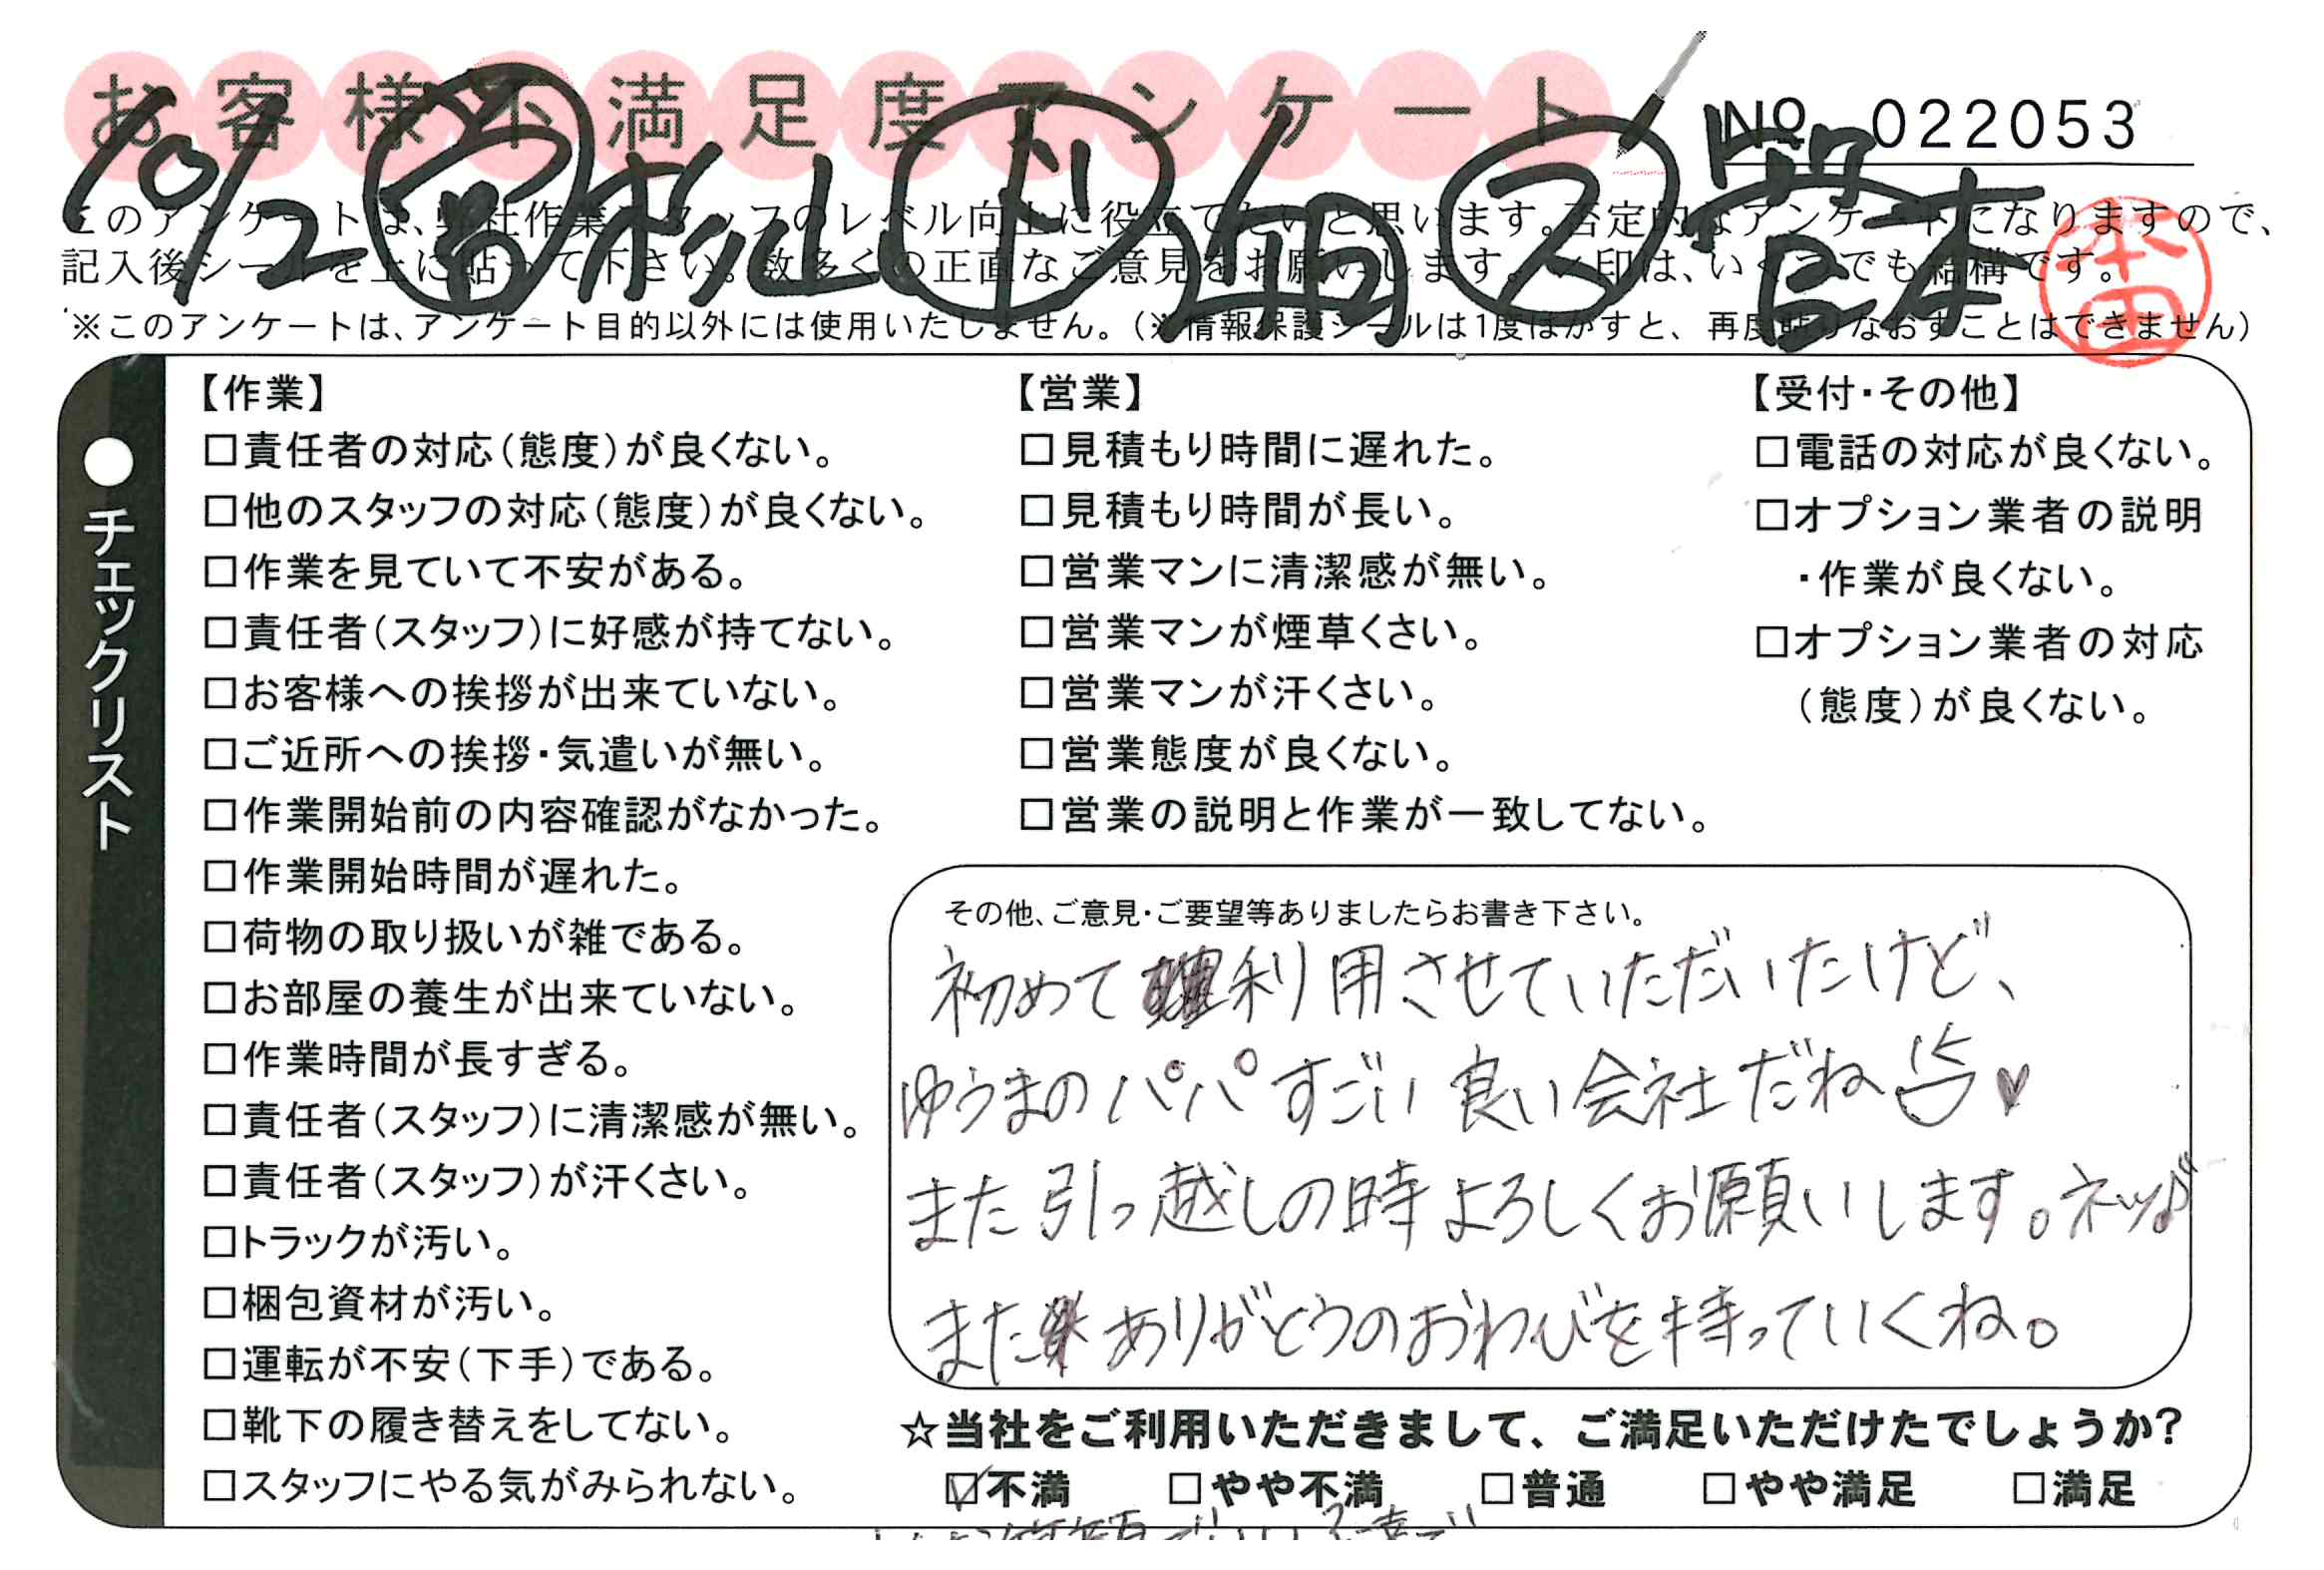 お客様不満足度アンケート
No. 022053
10/2 営 杉山 下 ス 宮本
本田
このアンケートは、弊社作業スタッフのレベル向上に役立てたいと思います。否定的なアンケートになりますので、
記入後シールを上に貼って下さい。数多くの正直なご意見をお願いします。レ印は、いくつでも結構です。
※このアンケートは、アンケート目的以外には使用いたしません。(※情報保護シールは1度はがすと、再度貼りなおすことはできません)
●チェックリスト
【作業】
□責任者の対応(態度)が良くない。
□他のスタッフの対応(態度)が良くない。
□作業を見ていて不安がある。
□責任者(スタッフ)に好感が持てない。
□お客様への挨拶が出来ていない。
□ご近所への挨拶・気遣いが無い。
□作業開始前の内容確認がなかった。
□作業開始時間が遅れた。
□荷物の取り扱いが雑である。
□お部屋の養生が出来ていない。
□作業時間が長すぎる。
□責任者(スタッフ)に清潔感が無い。
□責任者(スタッフ)が汗くさい。
□トラックが汚い。
□梱包資材が汚い。
□運転が不安(下手)である。
□靴下の履き替えをしてない。
□スタッフにやる気がみられない。
【営業】
□見積もり時間に遅れた。
□見積もり時間が長い。
□営業マンに清潔感が無い。
□営業マンが煙草くさい。
□営業マンが汗くさい。
□営業態度が良くない。
□営業の説明と作業が一致してない。
【受付・その他】
□電話の対応が良くない。
□オプション業者の説明
・作業が良くない。
□オプション業者の対応
(態度)が良くない。
その他、ご意見・ご要望等ありましたらお書き下さい。
初めて利用させていただいたけど、
ゆうまのパパすごい良い会社だね♥
また引っ越しの時よろしくお願いします。
またありがとうのおわびを持っていくね。
☆当社をご利用いただきまして、ご満足いただけたでしょうか?
☑不満 □やや不満 □普通 □やや満足 □満足